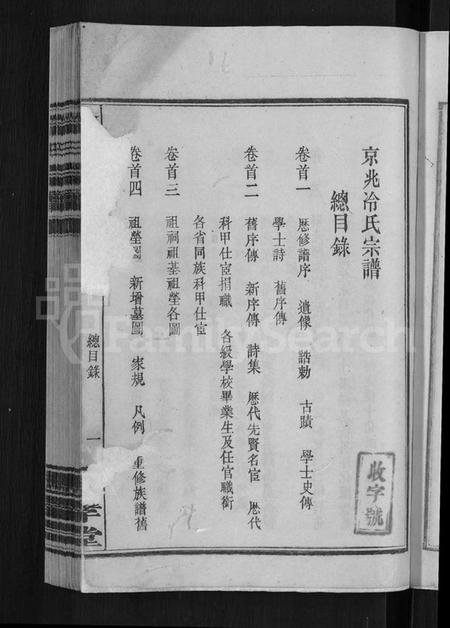 京兆冷氏宗譜
總目錄
卷首一 歷修譜序 遺像 誥勅 古蹟 學士史傳
學士詩 舊序傳
卷首二 舊序傳 新序傳 詩集 歷代先賢名宦 歷代
科甲仕宦捐職 各級學校畢業生及任官職銜
各省同族科甲仕宦
卷首三 祖祠祖墓祖塋各圖
卷首四 祖塋圖 新增墓圖 家規 凡例 重修族譜舊
總目錄 一
堂
收字號
FamilySearch